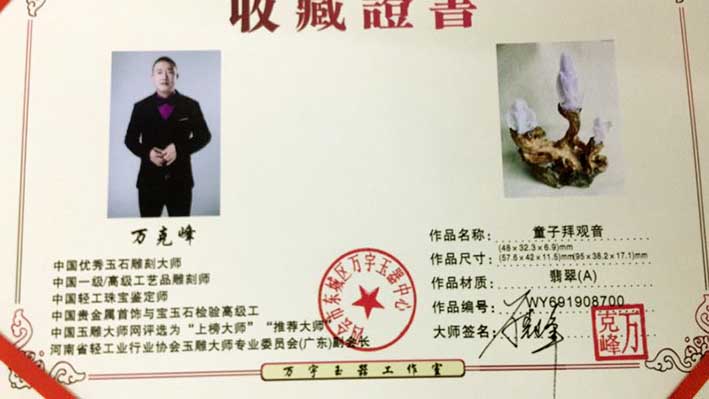 收藏證書
万克峰
中国优秀玉石雕刻大师
中国一级/高级工艺品雕刻师
中国轻工珠宝鉴定师
中国贵金属首饰与宝玉石检验高级工
中国玉雕大师网评选为“上榜大师”“推荐大师”
河南省轻工业行业协会玉雕大师专业委员会(广东)副会长
作品名称: 童子拜观音
(48×32.3×6.9)mm
作品尺寸: (57.6×42×11.5)mm(95×38.2×17.1)mm
作品材质: 翡翠(A)
作品编号: WY691908700
大师签名: 万克峰
万克峰
市东城区万宇玉器中心
万宇玉器工作室